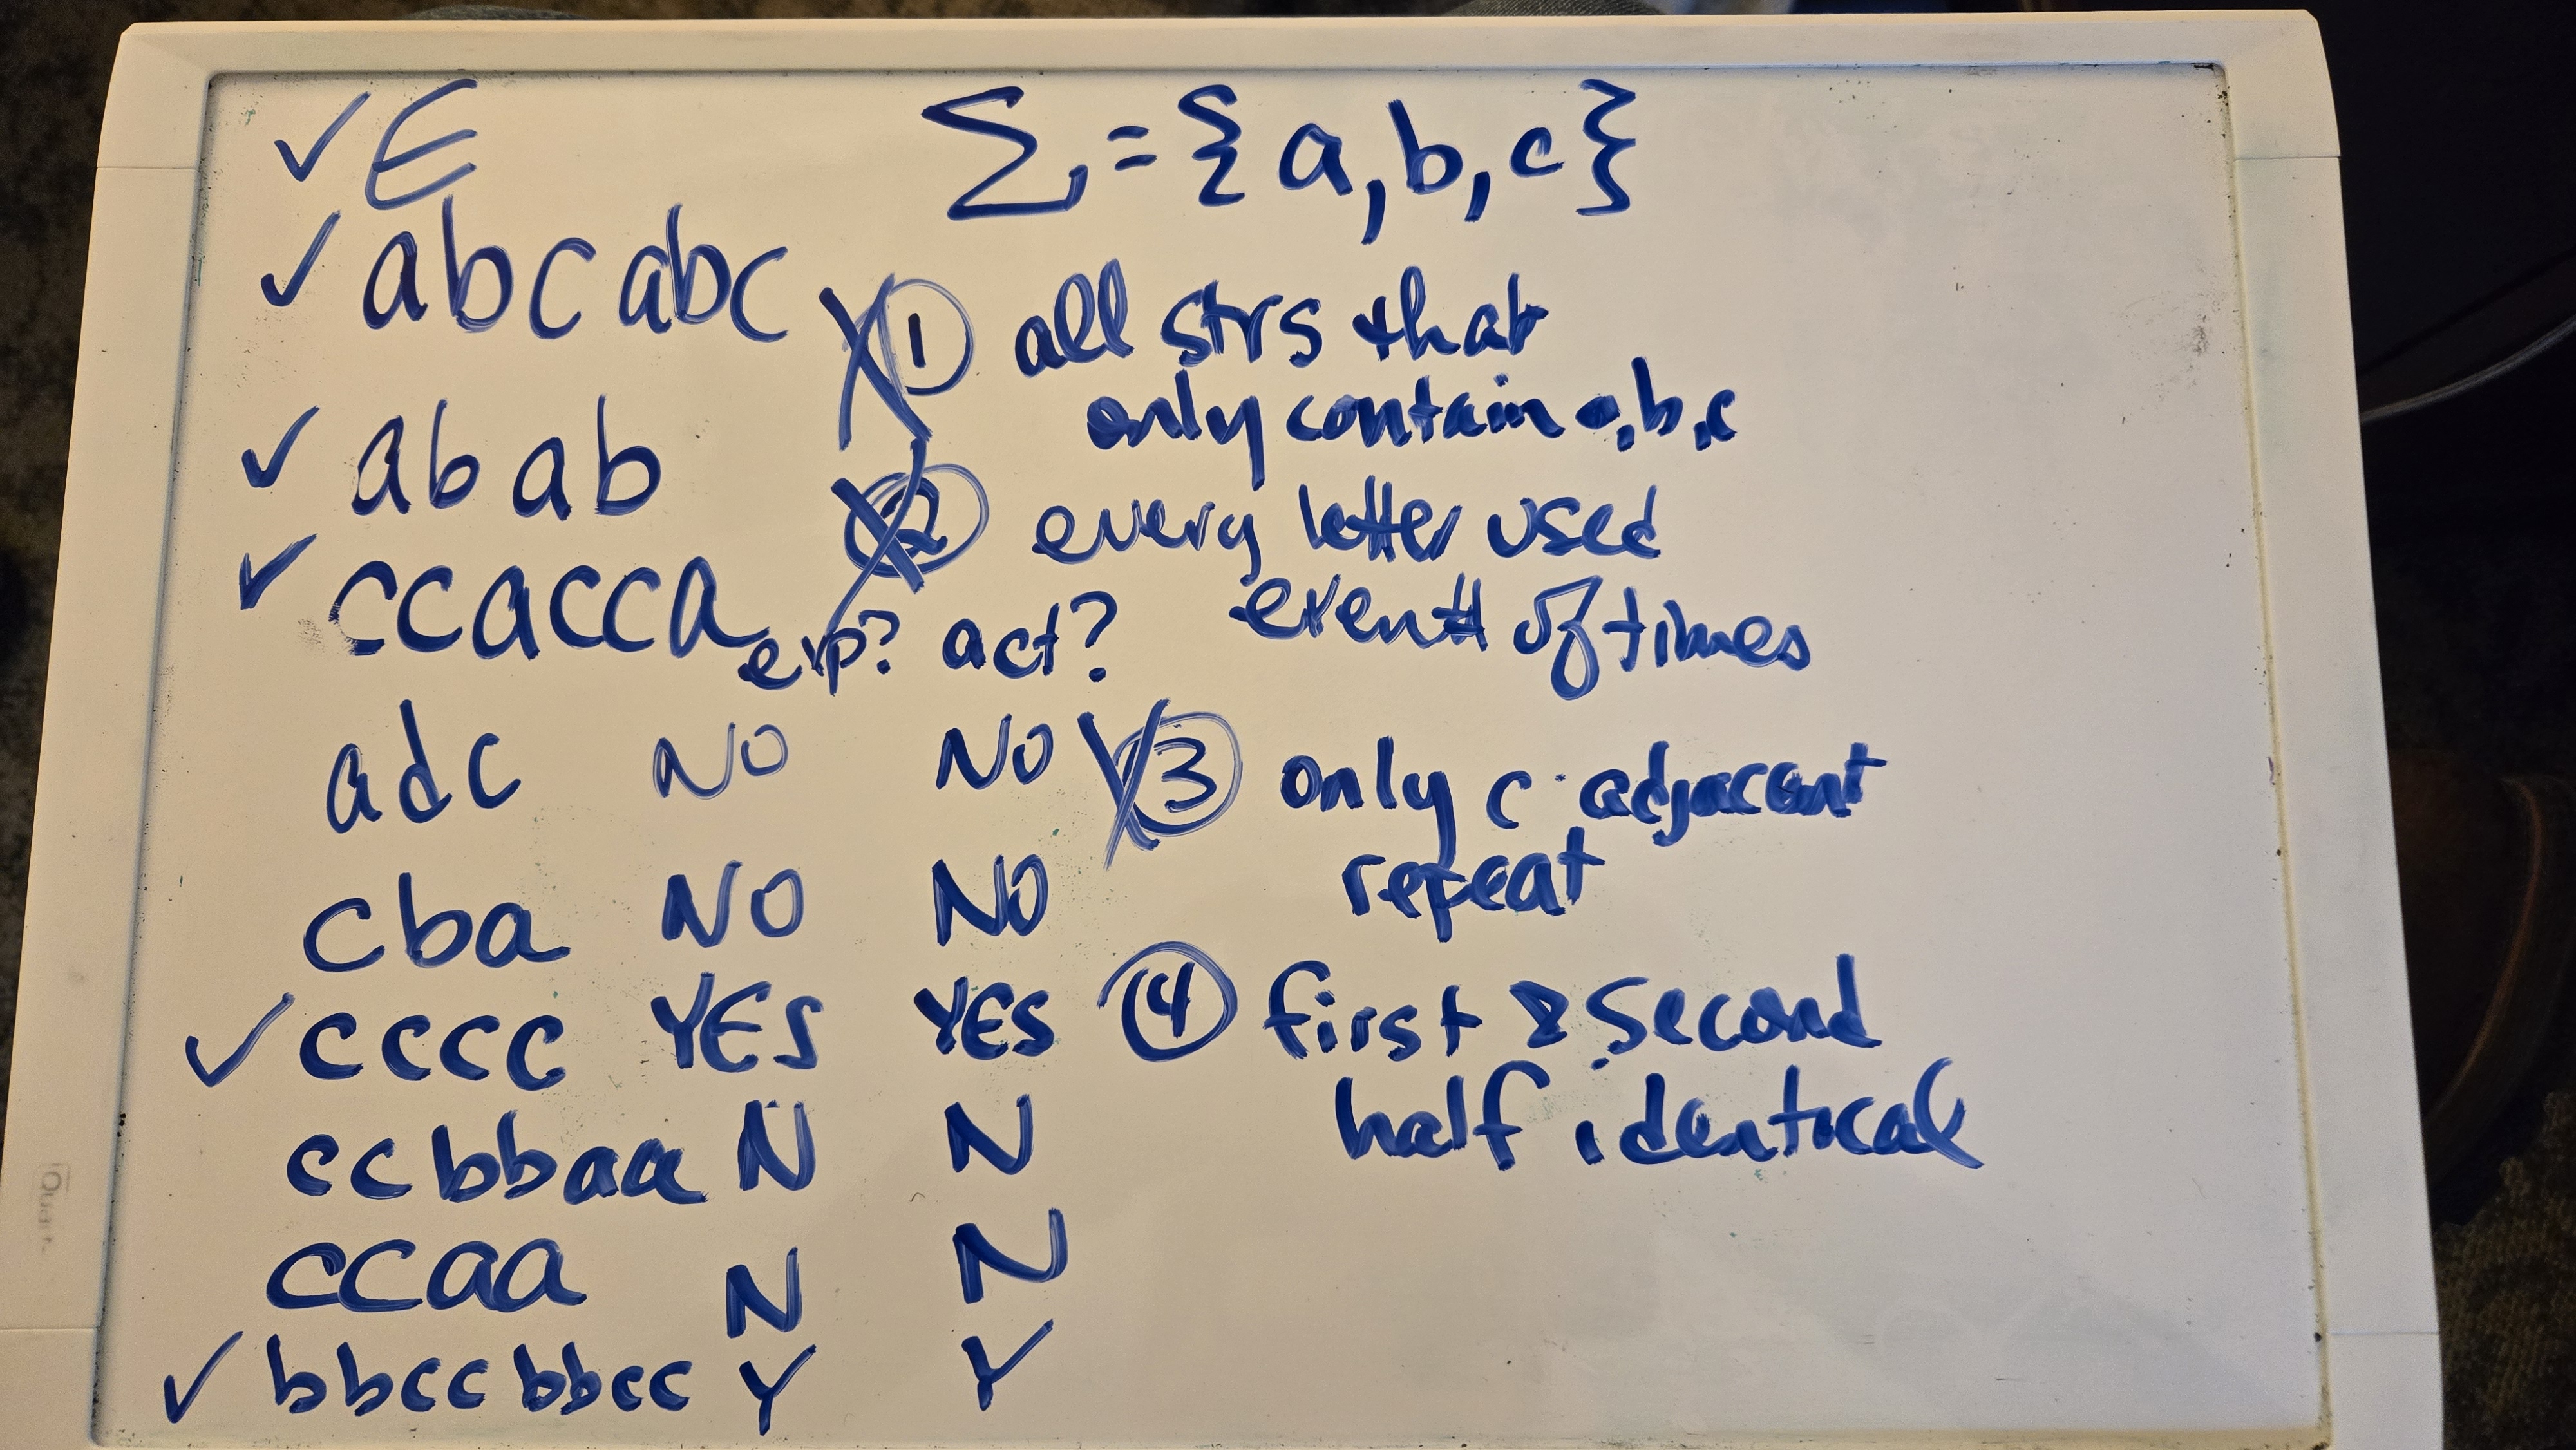 ✓ Є Σ = {a, b, c}
✓ abcabc
X ① all strs that
only contain a, b, c
✓ abab
X ② every letter used
even # of times
✓ ccacca
exp? act?
adc NO NO
X ③ only c adjacent
repeat
cba NO NO
✓ cccc YES YES
④ first & second
half identical
ccbbaa N N
ccaa N N
✓ bbccbbcc Y Y